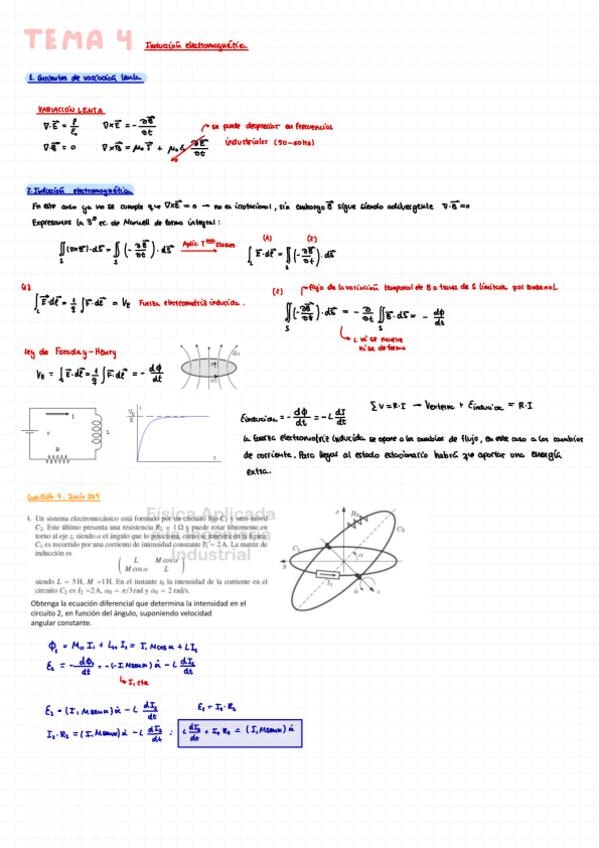 TEMA 4 Inducción electromagnética
1. Circuitos de variación lenta
VARIACIÓN LENTA
∇·E⃗ = ρ/ε₀   ∇×E⃗ = -∂B⃗/∂t
→ se puede despreciar en frecuencias
industriales (50-60Hz)
∇·B⃗ = 0   ∇×B⃗ = μ₀ J⃗ + μ₀ε₀ ∂E⃗/∂t
2. Inducción electromagnética
En este caso ya no se cumple que ∇×E⃗ = 0 → no es irrotacional, sin embargo B⃗ sigue siendo adivergente ∇·B⃗ = 0
Expresamos la 3ª ec. de Maxwell de forma integral:
∬_S (∇×E⃗)·dS⃗ = ∬_S (-∂B⃗/∂t)·dS⃗   Aplic. Tma Stokes →   ∫_L E⃗·dℓ⃗ = ∬_S (-∂B⃗/∂t)·dS⃗
(1) (2)
(1) ∫_L E⃗·dℓ⃗ = 1/q ∫ F⃗·dℓ⃗ = V_E Fuerza electromotriz inducida.
(2) → flujo de la variación temporal de B a traves de S
∬_S (-∂B⃗/∂t)·dS⃗ = -∂/∂t ∬ B⃗·dS⃗ = -dϕ/dt
→ L ni se mueve
ni se deforma
Ley de Faraday-Henry
V_E = ∫_L E⃗·dℓ⃗ = 1/q ∫ F⃗·dℓ⃗ = -dϕ/dt
I
L
R
ΣV = R·I → Vexterna + Einducida = R·I
Einducida = -dϕ/dt = -L dI/dt
La fuerza electromotriz inducida se opone a los cambios de flujo, en este caso a los cambios
de corriente. Para llegar al estado estacionario habrá que aportar una energía
extra.
Cuestión 4. Junio
Física Aplicada
Industrial
1. Un sistema electromecánico está formado por un circuito fijo C₁ y otro móvil
C₂. Este último presenta una resistencia R₂ = 1 Ω y puede rotar libremente en
torno al eje z, siendo α el ángulo que lo posiciona, como se muestra en la figura.
C₁ es recorrido por una corriente de intensidad constante I₁ = 2 A. La matriz de
inducción es
( L   M cos α
M cos α   L )
siendo L = 5 H, M = 1 H. En el instante t₀ la intensidad de la corriente en el
circuito C₂ es I₂ = 2 A, α₀ = π/3 rad y α̇₀ = 2 rad/s.
Obtenga la ecuación diferencial que determina la intensidad en el
circuito 2, en función del ángulo, suponiendo velocidad
angular constante.
C₁
C₂
R₂
I₁
α
ϕ₂ = M₂₁ I₁ + L₂₂ I₂ = I₁ M cos α + L I₂
ε₂ = -dϕ₂/dt = -(-I₁ M sen α) α̇ - L dI₂/dt
→ I₁ cte
ε₂ = (I₁ M sen α) α̇ - L dI₂/dt   ε₂ = I₂·R₂
I₂·R₂ = (I₁ M sen α) α̇ - L dI₂/dt ; L dI₂/dt + I₂ R₂ = (I₁ M sen α) α̇